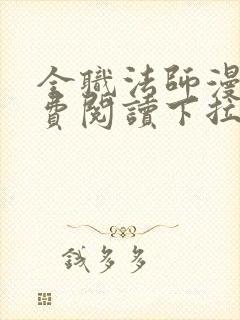 全職法師漫
費閱讀下拉
錢多多